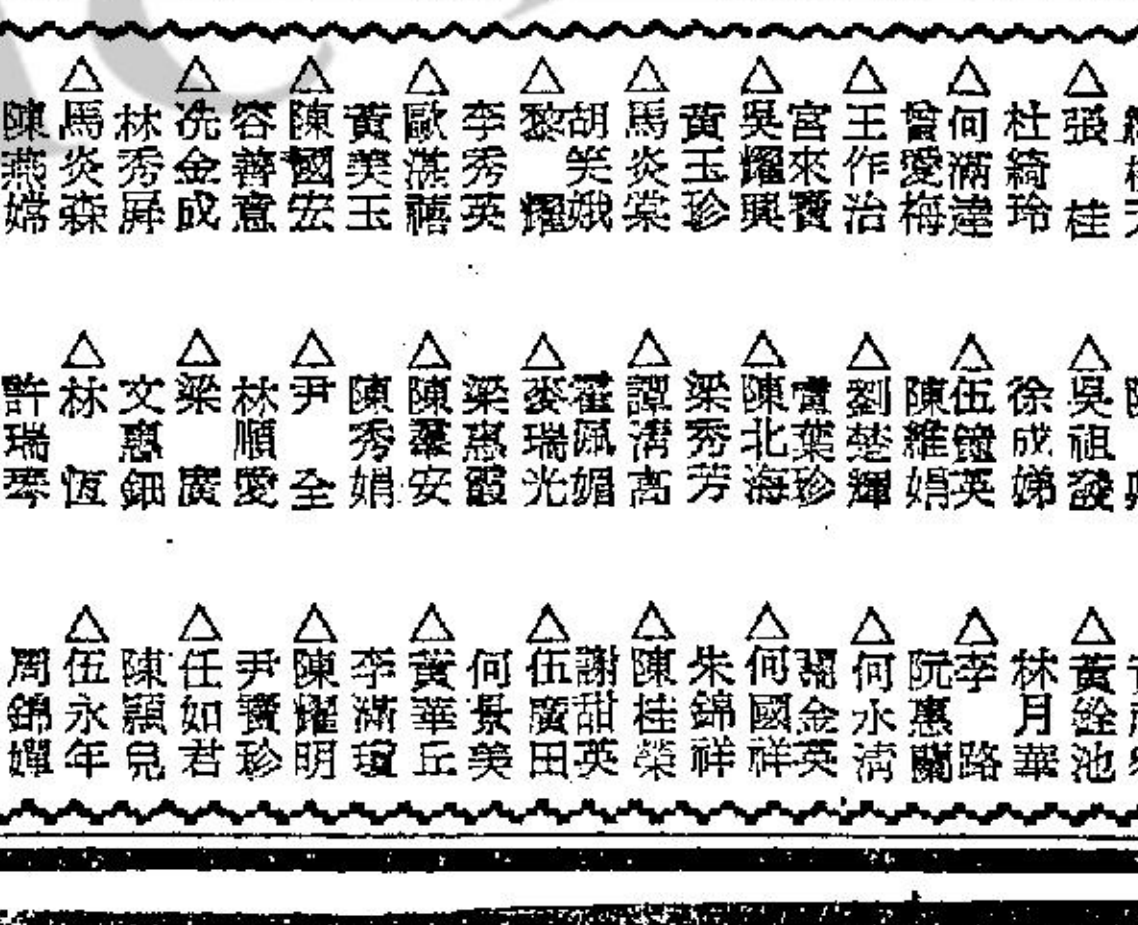 △張桂
杜綺玲
△何滿達
曾愛梅
△王作治
宮來寶
△吳耀興
黃玉珍
△馬炎棠
胡笑娥
△黎耀
李秀英
△歐湛禧
黃美玉
△陳國宏
容善意
△冼金成
林秀屏
△馬炎森
陳燕嫦
△吳祖
徐成娣
△伍鐘英
陳維娟
△劉楚輝
葉珍
△陳北海
梁秀芳
△譚清高
霍佩媚
△麥瑞光
梁惠霞
△陳羣安
陳秀娟
△尹全
林順愛
△梁廣
文惠鈿
△林恆
許瑞琴
△黃銓池
林月華
△李路
阮惠蘭
△何水清
關金英
△何國祥
朱錦祥
△陳桂榮
謝甜英
△伍廣田
何景美
△黃華丘
李滿瓊
△陳耀明
尹寶珍
△任如君
陳顯兒
△伍永年
周錦嬋